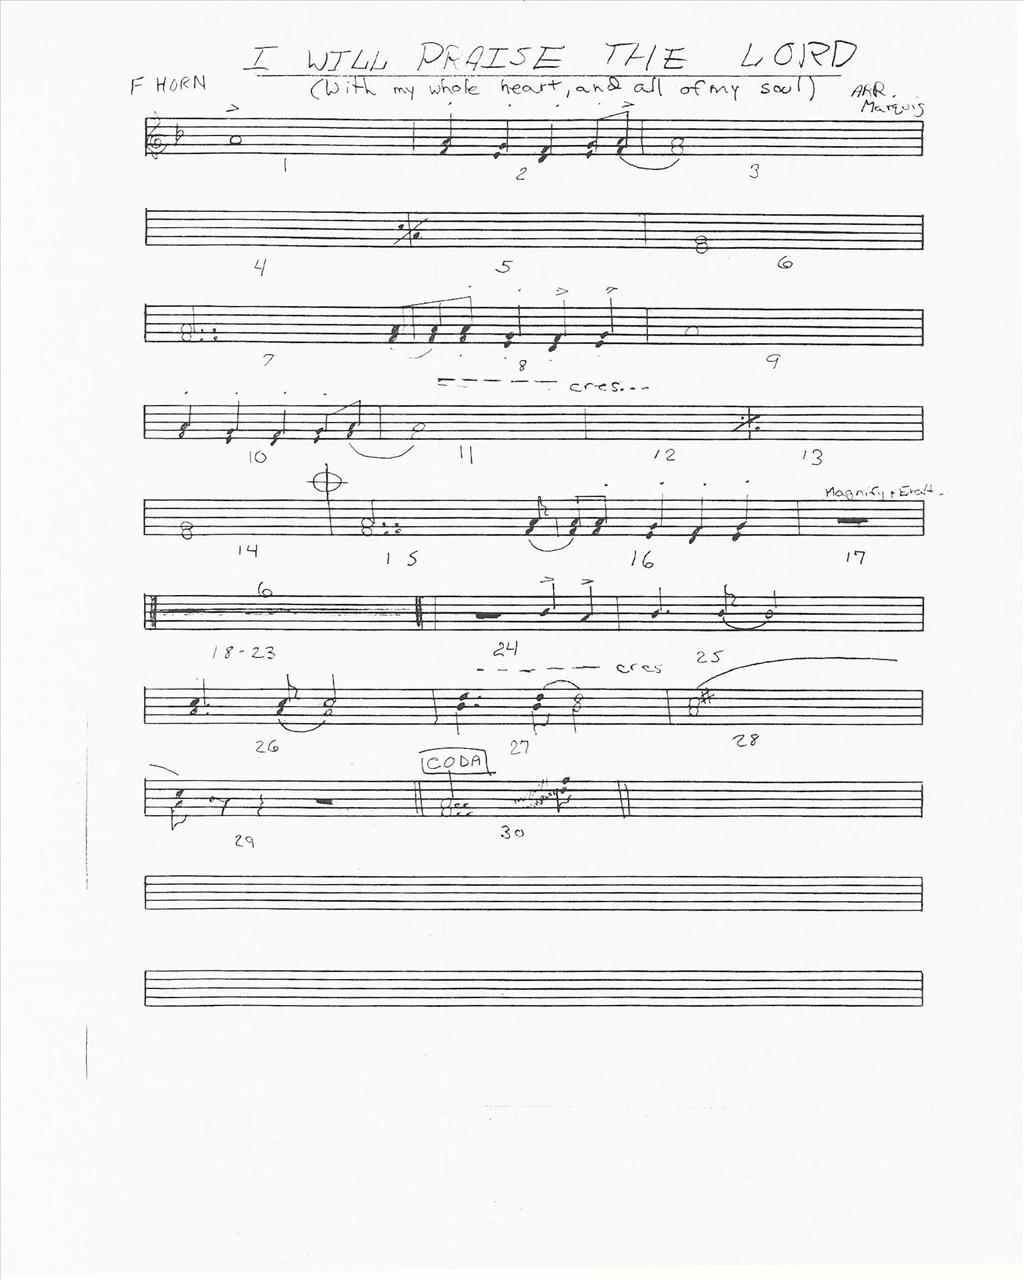 I WILL PRAISE THE LORD
F HORN (With my whole heart, and all of my soul) ARR. Marquis
1 2 3
4 5 6
7 8 9
cres...
10 11 12 13
Magnify +
14 15 16 17
6
18-23 24 25
cres
26 27 28
CODA
29 30